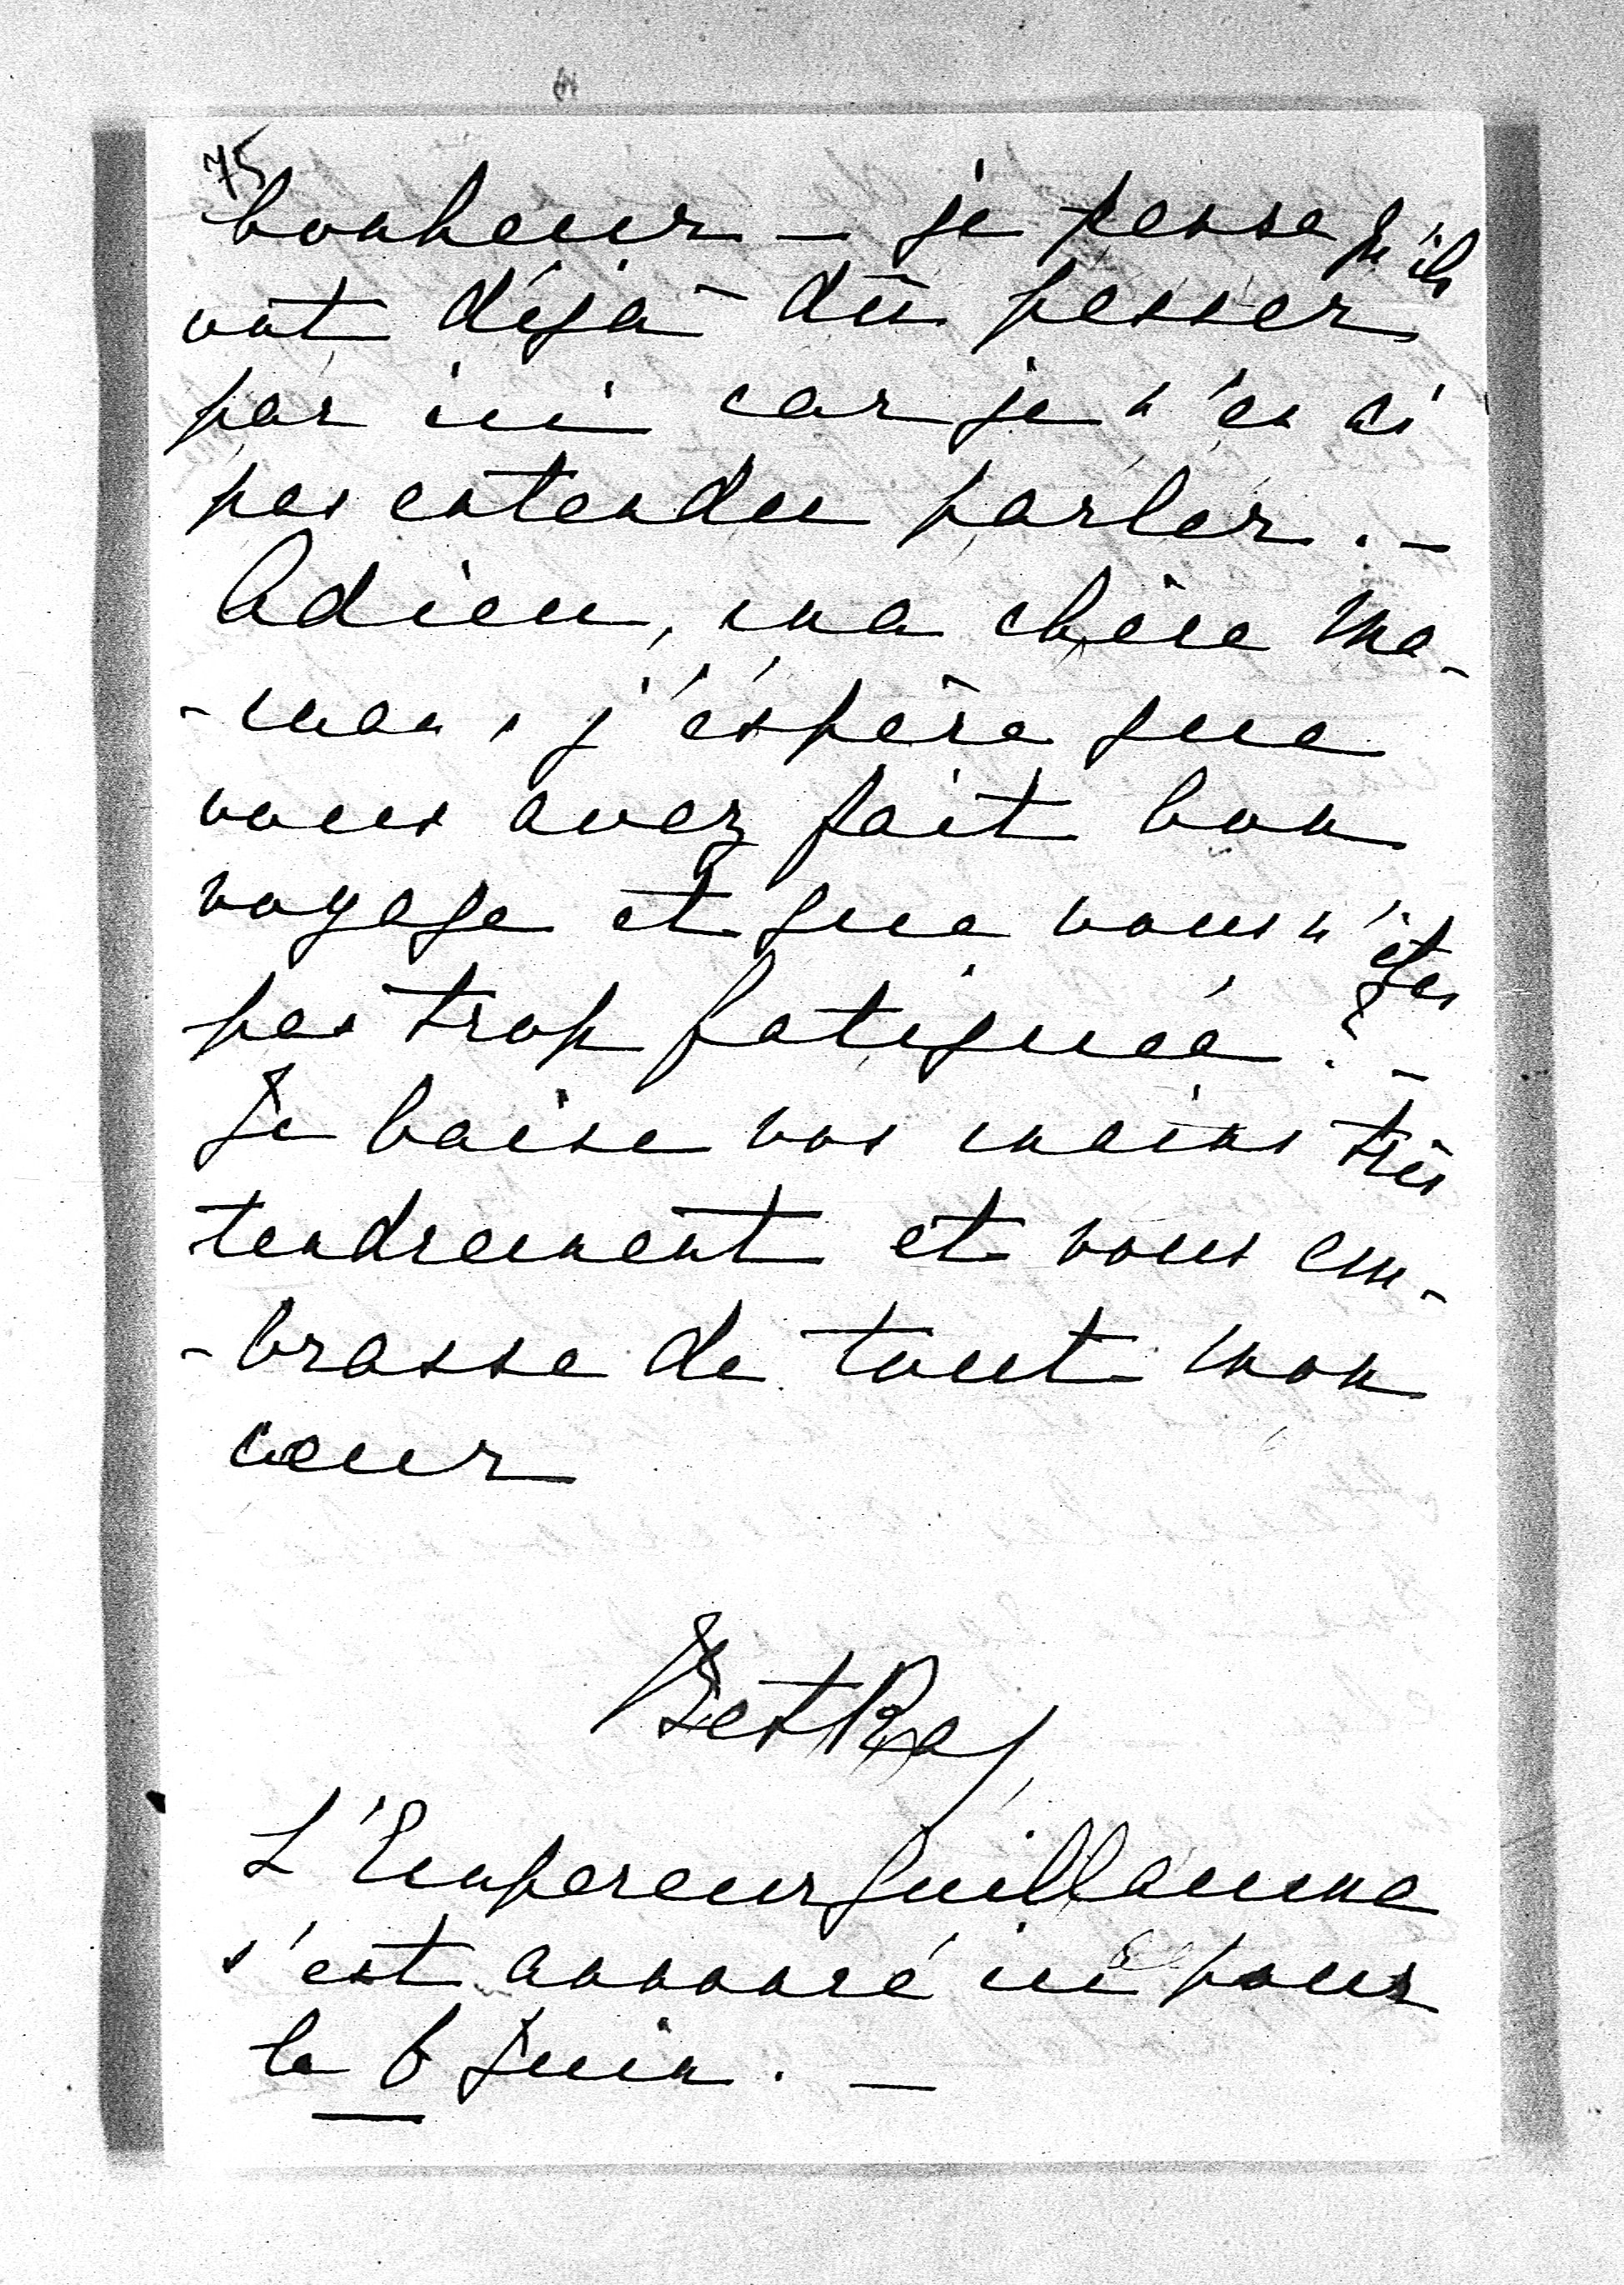 75
bonheur — je pense qu'ils
ont déjà dû passer
par ici car je n'en ai
pas entendu parler. —
Adieu, ma chère ma-
-man, j'éspère que
vous avez fait bon
voyage et que vous n'êtes
pas trop fatiguée? —
Je baise vos mains très
tendrement et vous em-
-brasse de tout mon
cœur
L'Empereur Guillaume
s'est annoncé ici pour
le 6 Juin. —